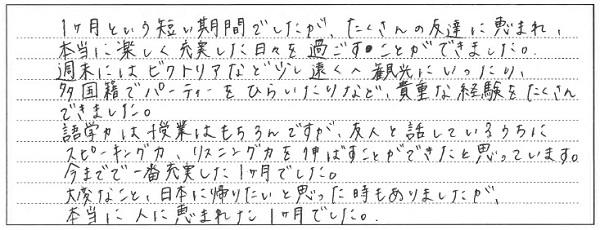 1ヶ月という短い期間でしたが、たくさんの友達に恵まれ、
本当に楽しく充実した日々を過ごすことができました。
週末にはビクトリアなど少し遠くへ観光にいったり、
多国籍でパーティーをひらいたりなど、貴重な経験をたくさん
できました。
語学力は授業はもちろんですが、友人と話しているうちに
スピーキング力、リスニング力を伸ばすことができたと思っています。
今までで一番充実した1ヶ月でした。
大変なこと、日本に帰りたいと思った時もありましたが、
本当に人に恵まれた1ヶ月でした。